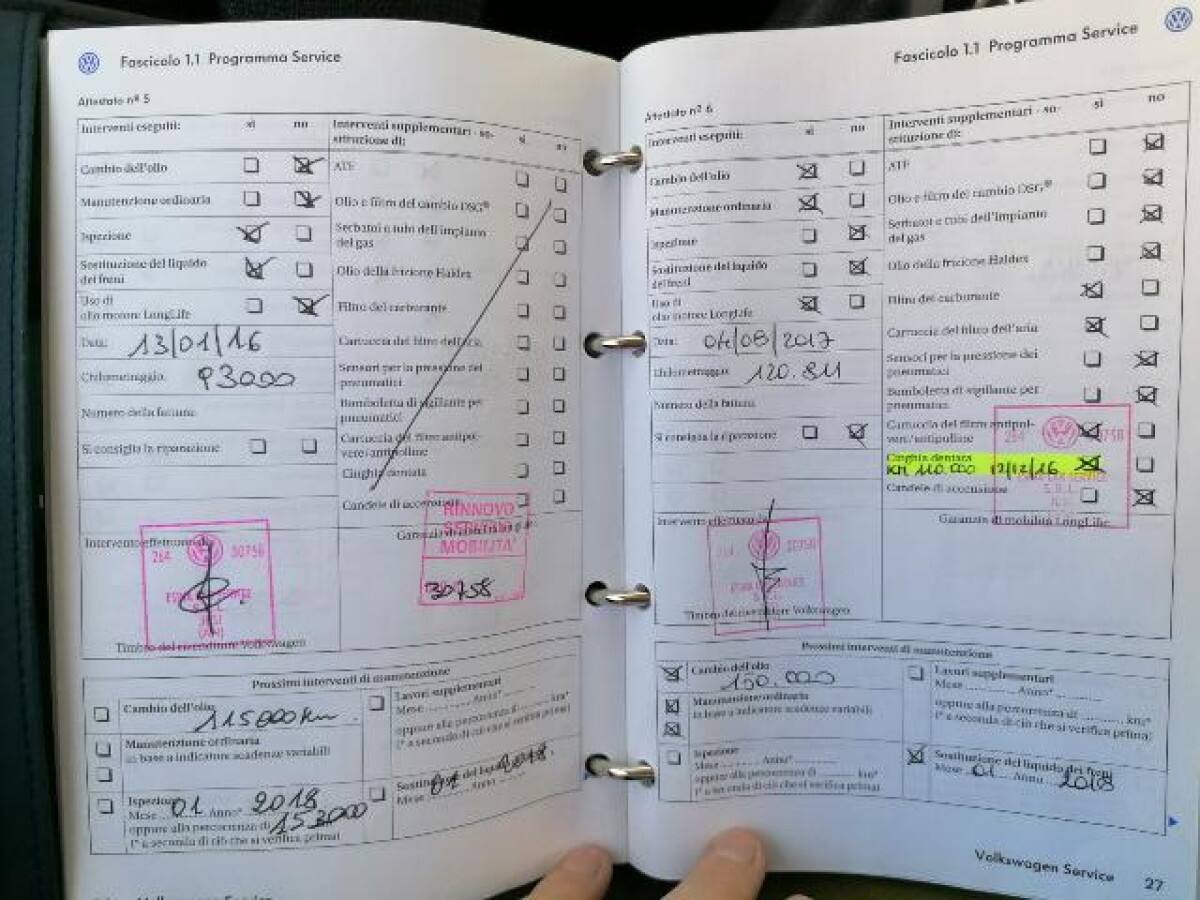 Fascicolo 1.1 Programma Service
Attestato nº 5
Interventi eseguiti: sì no
Cambio dell'olio
Manutenzione ordinaria
Ispezione
Sostituzione del liquido
dei freni
Uso di
olio motore LongLife
Data: 13/01/16
Chilometraggio: 93000
Numero della fattura
Si consiglia la riparazione
Interventi supplementari - so-
stituzione di: sì no
ATF
Olio e filtri del cambio DSG®
Serbatoi e tubi dell'impianto
del gas
Olio della frizione Haldex
Filtro del carburante
Cartuccia del filtro dell'aria
Sensori per la pressione dei
pneumatici
Bomboletta di sigillante per
pneumatici
Cartuccia del filtro antipol-
vere/antipolline
Cinghia dentata
Candele di accensione
Intervento effettuato da
264 30758
JESI
(AN)
Timbro del rivenditore Volkswagen
Garanzia di
RINNOVO
MOBILITA'
30758
Prossimi interventi di manutenzione
Cambio dell'olio
115000 km
Manutenzione ordinaria
in base a indicatore scadenze variabili
Ispezione
Mese 01 Anno* 2018
oppure alla percorrenza di 153000
(* a seconda di ciò che si verifica prima)
Lavori supplementari
Mese Anno*
oppure alla percorrenza di km*
(* a seconda di ciò che si verifica prima)
Sostituzione del liquido
Mese 01 Anno 2018
Volkswagen Service
Fascicolo 1.1 Programma Service
Attestato nº 6
Interventi eseguiti: sì no
Cambio dell'olio
Manutenzione ordinaria
Ispezione
Sostituzione del liquido
dei freni
Uso di
olio motore LongLife
Data: 04/08/2017
Chilometraggio: 120.811
Numero della fattura
Si consiglia la riparazione
Interventi supplementari - so-
stituzione di: sì no
ATF
Olio e filtri del cambio DSG®
Serbatoi e tubi dell'impianto
del gas
Olio della frizione Haldex
Filtro del carburante
Cartuccia del filtro dell'aria
Sensori per la pressione dei
pneumatici
Bomboletta di sigillante per
pneumatici
Cartuccia del filtro antipol-
vere/antipolline
Cinghia dentata
KM 110.000 12/12/16
Candele di accensione
264 30758
S.R.L.
Intervento effettuato da
264 30758
Timbro del rivenditore Volkswagen
Garanzia di mobilità LongLife
Prossimi interventi di manutenzione
Cambio dell'olio
150.000
Manutenzione ordinaria
in base a indicatore scadenze variabili
Ispezione
Mese Anno*
oppure alla percorrenza di km*
(* a seconda di ciò che si verifica prima)
Lavori supplementari
Mese Anno*
oppure alla percorrenza di km*
(* a seconda di ciò che si verifica prima)
Sostituzione del liquido dei freni
Mese 01 Anno 2018
Volkswagen Service 27